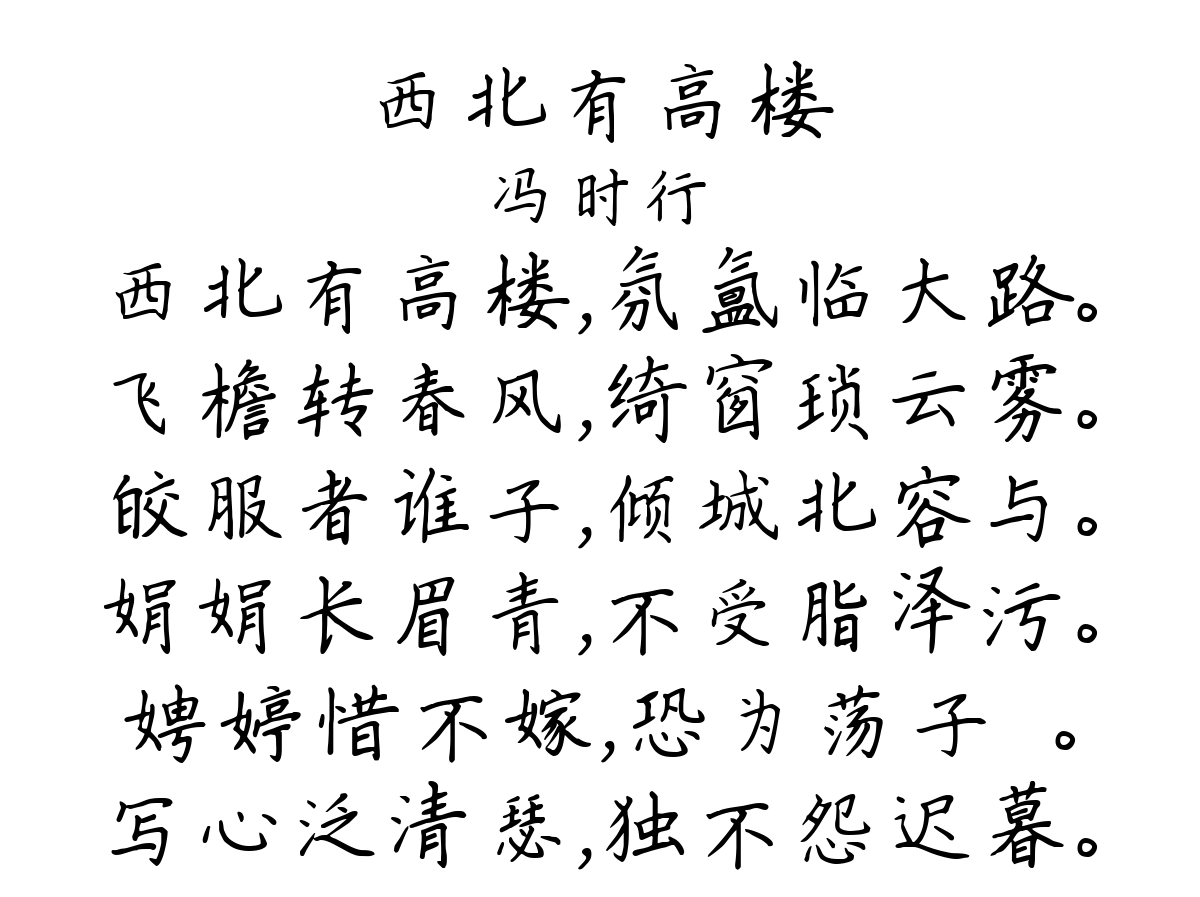 西北有高楼
冯时行
西北有高楼,氛氲临大路。
飞檐转春风,绮窗琐云雾。
皎服者谁子,倾城北容与。
娟娟长眉青,不受脂泽污。
娉婷惜不嫁,恐为荡子 。
写心泛清瑟,独不怨迟暮。